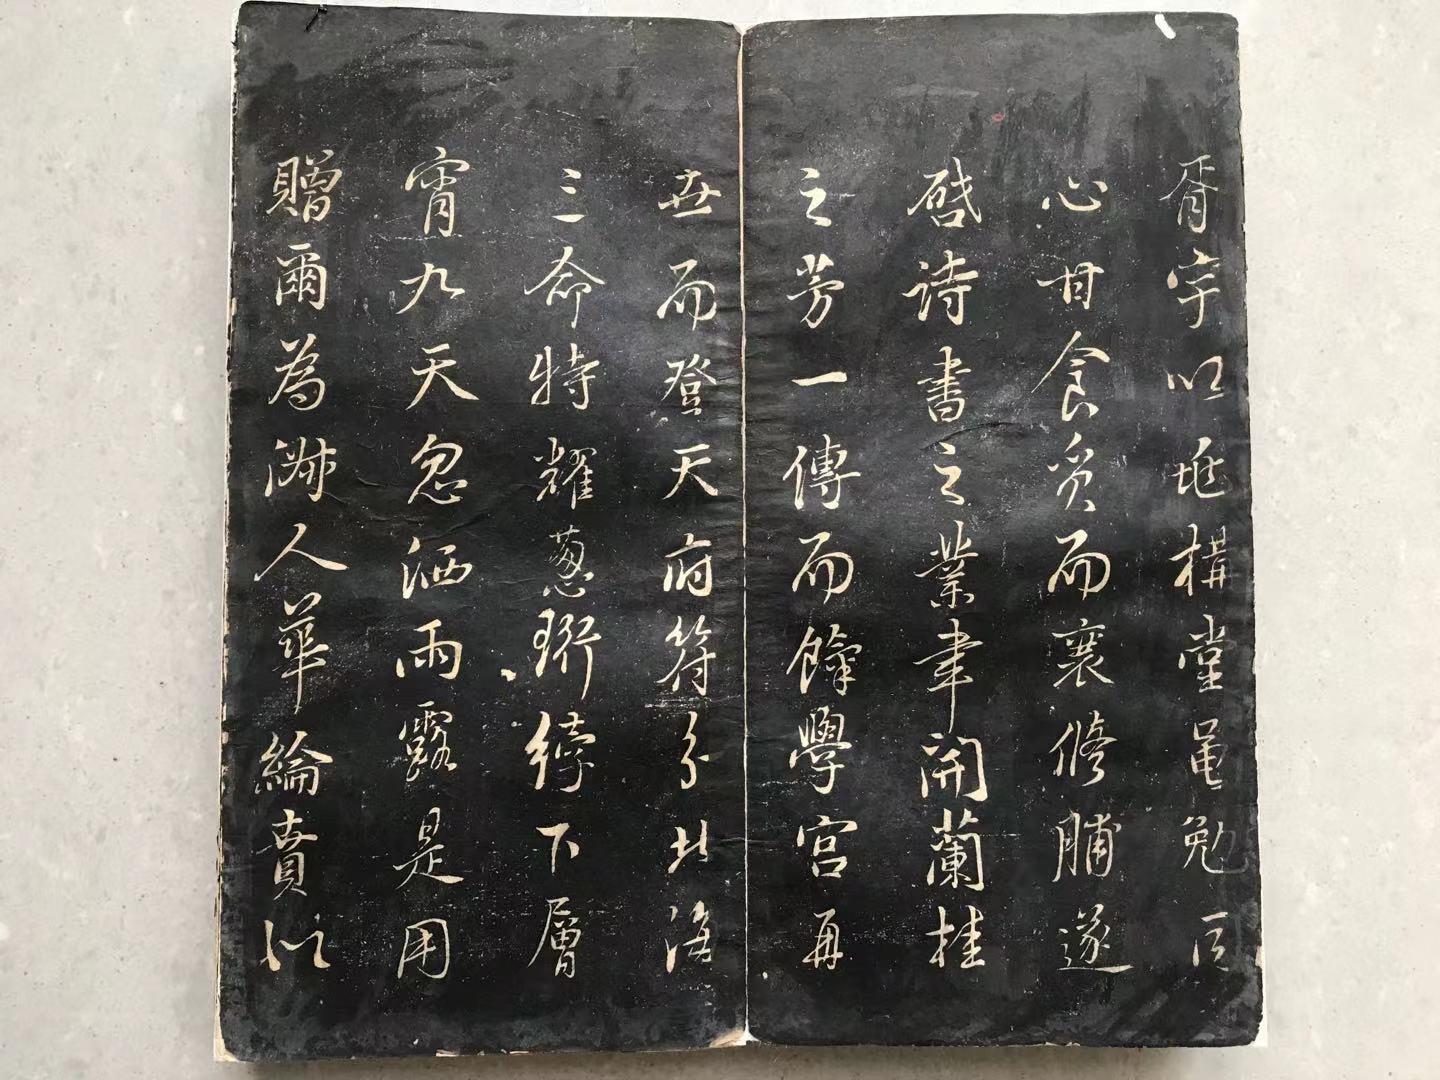 胥宇以垝構堂黽勉同
心甘食貧而襄脩脯遂
啓詩書之業聿開蘭桂
之芳一傳而餘學宮再
世而登天府符分北海
三命特耀蔥珩綍下層
宵九天忽洒雨露是用
贈爾為淑人華綸賁以